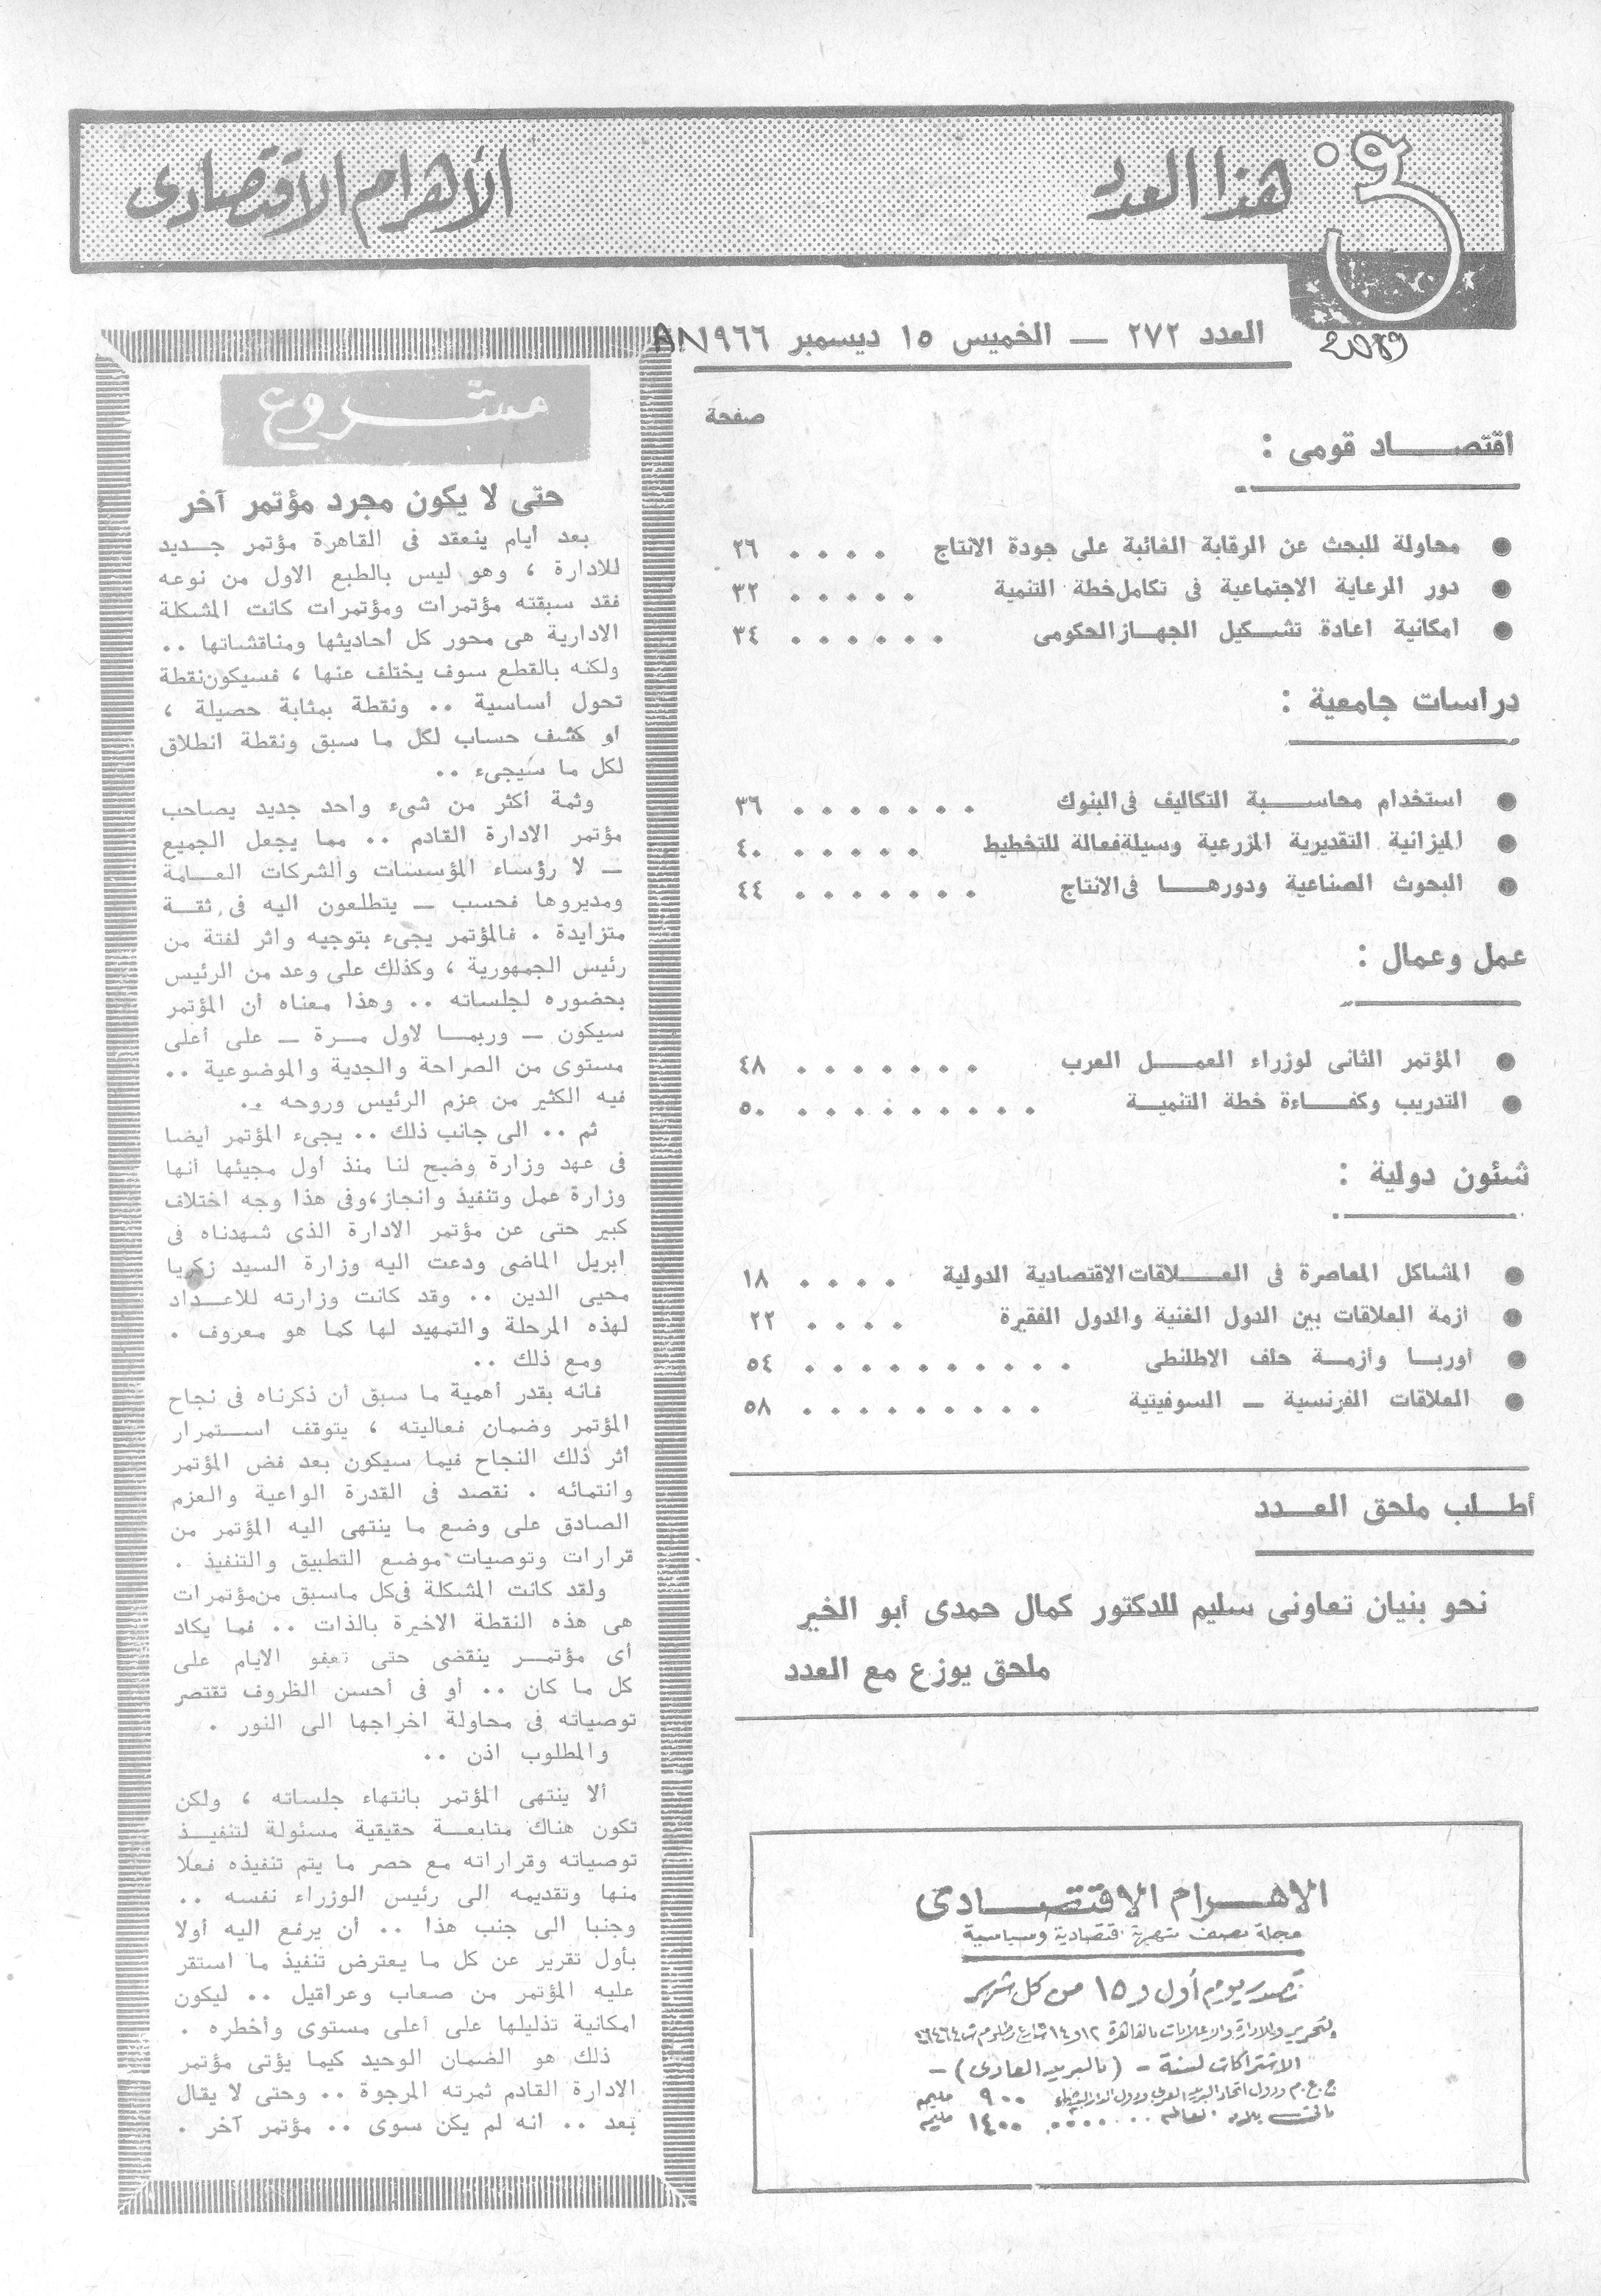 في هذا العدد
الأهرام الاقتصادى
العدد ٢٧٢ — الخميس ١٥ ديسمبر ١٩٦٦
2089
صفحة
اقتصـــاد قومى :
● محاولة للبحث عن الرقابة الغائبة على جودة الانتاج . . . . ٢٦
● دور الرعاية الاجتماعية فى تكامل خطة التنمية . . . . . ٣٢
● امكانية اعادة تشـكيل الجهـاز الحكومى . . . . . . ٣٤
دراسات جامعية :
● استخدام محاســـبة التكاليف فى البنوك . . . . . . . ٣٦
● الميزانية التقديرية المزرعية وسيلة فعالة للتخطيط . . . . . ٤٠
● البحوث الصناعية ودورهـــا فى الانتاج . . . . . . . ٤٤
عمل وعمال :
● المؤتمر الثانى لوزراء العمـــل العرب . . . . . . . ٤٨
● التدريب وكفـــاءة خطة التنميـــة . . . . . . . . . ٥٠
شئون دولية :
● المشاكل المعاصرة فى العـــلاقات الاقتصادية الدولية . . . . ١٨
● أزمة العلاقات بين الدول الغنية والدول الفقيرة . . . . ٢٢
● أوربـــا وأزمـــة حلف الاطلنطى . . . . . . . . . . ٥٤
● العلاقات الفرنسية — السوفيتية . . . . . . . . . ٥٨
أطـــلب ملحق العـــدد
نحو بنيان تعاونى سليم للدكتور كمال حمدى أبو الخير
ملحق يوزع مع العدد
الاهـــرام الاقتصـــادى
مجلة نصف شهرية اقتصادية وسياسية
تصدر يوم أول و ١٥ من كل شهر
الاشتراكات لسنة - (بالبريد العادى) -
٩٠٠ مليم
باقى بلاد العالم . . . . . . . ١٤٠٠ مليم
مشـــروع
حتى لا يكون مجرد مؤتمر آخر
بعد أيام ينعقد فى القاهرة مؤتمر جـــديد
للادارة ، وهو ليس بالطبع الاول من نوعه
فقد سبقته مؤتمرات ومؤتمرات كانت المشكلة
الادارية هى محور كل أحاديثها ومناقشاتها ..
ولكنه بالقطع سوف يختلف عنها ، فسيكون نقطة
تحول أساسية .. ونقطة بمثابة حصيلة ،
او كشف حساب لكل ما سبق ونقطة انطلاق
لكل ما سيجىء ..
وثمة أكثر من شىء واحد جديد يصاحب
مؤتمر الادارة القادم .. مما يجعل الجميع
— لا رؤساء المؤسسات والشركات العـــامة
ومديروها فحسب — يتطلعون اليه فى ثقـــة
متزايدة . فالمؤتمر يجىء بتوجيه واثر لفتة من
رئيس الجمهورية ، وكذلك على وعد من الرئيس
بحضوره لجلساته .. وهذا معناه أن المؤتمر
سيكون — وربمـــا لاول مـــرة — على أعلى
مستوى من الصراحة والجدية والموضوعية ..
فيه الكثير من عزم الرئيس وروحه ..
ثم .. الى جانب ذلك .. يجىء المؤتمر أيضا
فى عهد وزارة وضح لنا منذ أول مجيئها أنها
وزارة عمل وتنفيذ وانجاز ، وفى هذا وجه اختلاف
كبير حتى عن مؤتمر الادارة الذى شهدناه فى
ابريل الماضى ودعت اليه وزارة السيد زكريا
محيى الدين .. وقد كانت وزارته للاعـــداد
لهذه المرحلة والتمهيد لها كما هو معروف .
ومع ذلك ..
فانه بقدر أهمية ما سبق أن ذكرناه فى نجاح
المؤتمر وضمان فعاليته ، يتوقف اســـتمرار
أثر ذلك النجاح فيما سيكون بعد فض المؤتمر
وانتهائه . نقصد فى القدرة الواعية والعزم
الصادق على وضع ما ينتهى اليه المؤتمر من
قرارات وتوصيات موضع التطبيق والتنفيذ .
ولقد كانت المشكلة فى كل ما سبق من مؤتمرات
هى هذه النقطة الاخيرة بالذات .. فما يكاد
أى مؤتمـــر ينقضى حتى تعفو الايام على
كل ما كان .. أو فى أحسن الظروف تقتصر
توصياته فى محاولة اخراجها الى النور .
والمطلوب اذن ..
ألا ينتهى المؤتمر بانتهاء جلساته ، ولكن
تكون هناك متابعـــة حقيقية مسئولة لتنفيـــذ
توصياته وقراراته مع حصر ما يتم تنفيذه فعلا
منها وتقديمه الى رئيس الوزراء نفسه ..
وجنبا الى جنب هذا .. أن يرفع اليه أولا
بأول تقرير عن كل ما يعترض تنفيذ ما استقر
عليه المؤتمر من صعاب وعراقيل .. ليكون
امكانية تذليلها على أعلى مستوى وأخطره .
ذلك هو الضمان الوحيد كيما يؤتى مؤتمر
الادارة القادم ثمرته المرجوة .. وحتى لا يقال
بعد .. انه لم يكن سوى .. مؤتمر آخر .